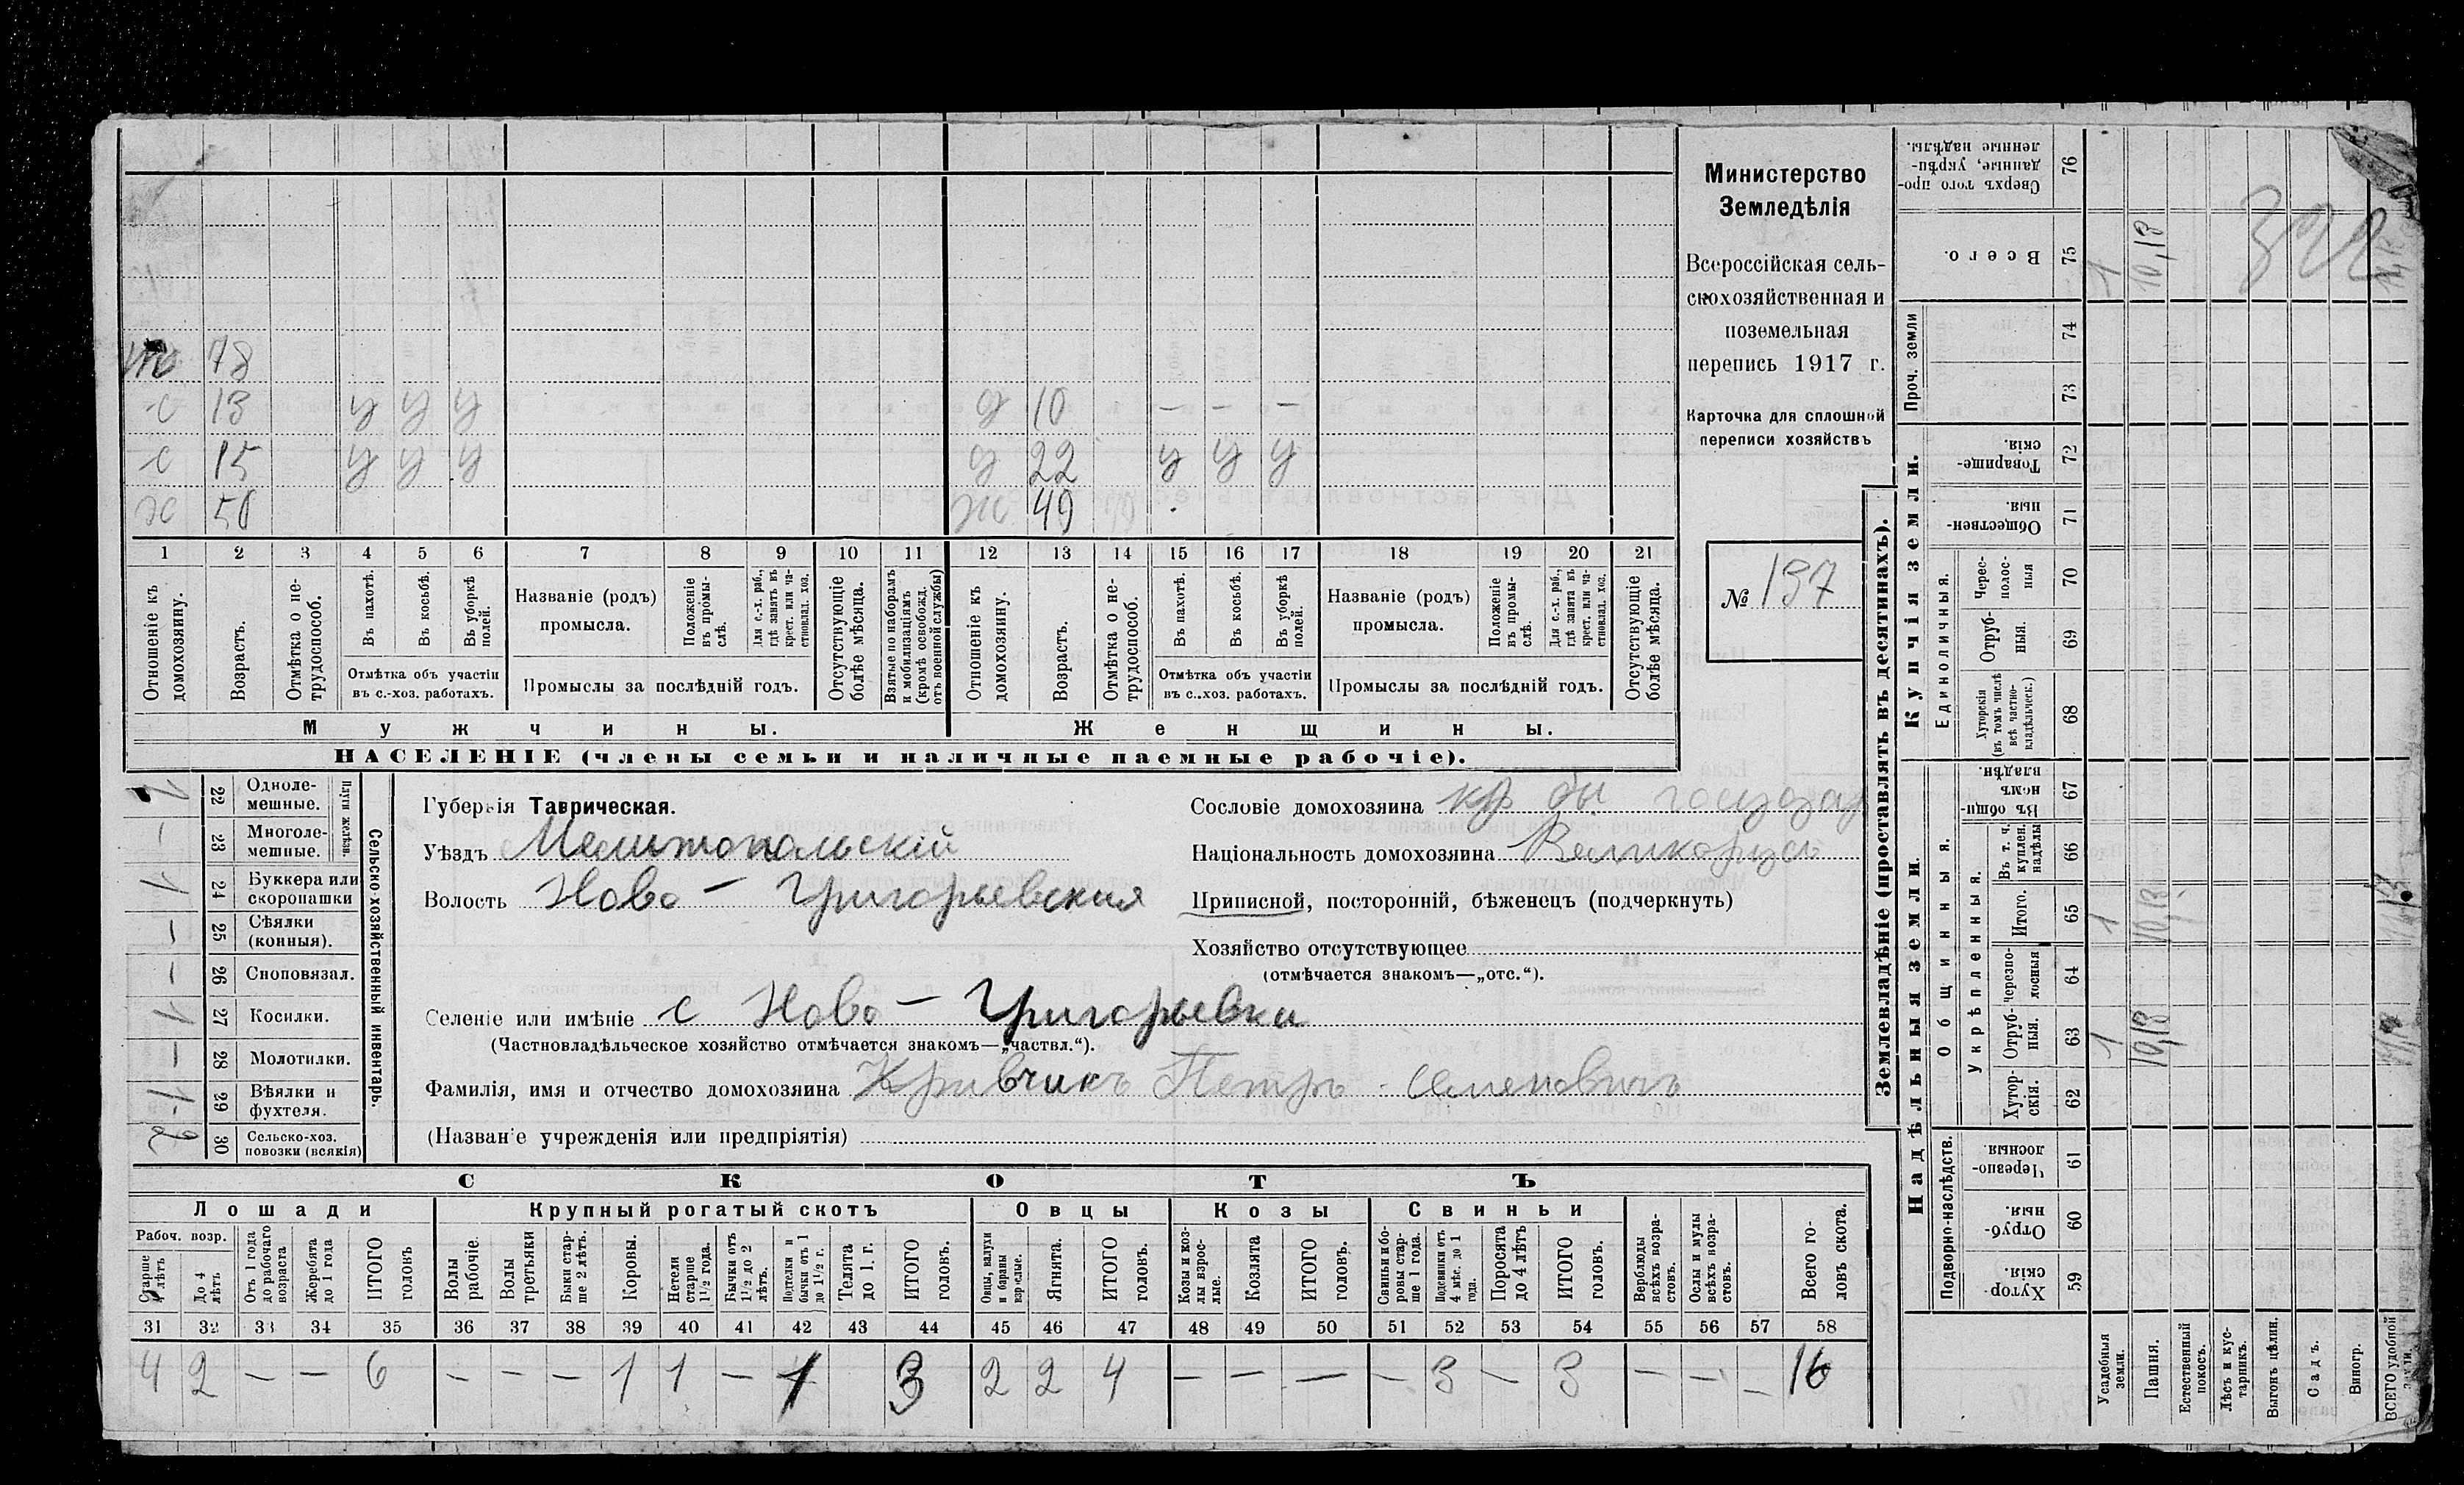 Министерство
Земледѣлія
Всероссійская сель-
скохозяйственная и
поземельная
перепись 1917 г.
Карточка для сплошной
переписи хозяйствъ
№ 197
78
с 13 у у у д 10 - - -
с 15 у у у д 22 у у у
х 50 ж 49
1 2 3 4 5 6 7 8 9 10 11 12 13 14 15 16 17 18 19 20 21
Отношеніе къ домохозяину.
Возрастъ.
Отмѣтка о не-трудоспособ.
Въ пахотѣ.
Въ косьбѣ.
Въ уборкѣ полей.
Отмѣтка объ участіи
въ с.-хоз. работахъ.
Названіе (родъ)
промысла.
Положеніе въ промы-слѣ.
Для с.-х. раб., гдѣ занятъ въ крест. или ча-стновлад. хоз.
Промыслы за послѣдній годъ.
Отсутствующіе болѣе мѣсяца.
Взятые по наборамъ и мобилизаціямъ (кромѣ освобожд. отъ военной службы)
Отношеніе къ домохозяину.
Возрастъ.
Отмѣтка о не-трудоспособ.
Въ пахотѣ.
Въ косьбѣ.
Въ уборкѣ полей.
Отмѣтка объ участіи
въ с..хоз. работахъ.
Названіе (родъ)
промысла.
Положеніе въ промы-слѣ.
Для с.-х. раб., гдѣ занята въ крест. или ча-стновлад. хоз.
Промыслы за послѣдній годъ.
Отсутствующіе болѣе мѣсяца.
Мужчины. Женщины.
НАСЕЛЕНІЕ (члены семьи и наличные наемные рабочіе).
Сельско-хозяйственный инвентарь.
Плуги желѣзн.
1 22 Одноле-мешные.
— 23 Многоле-мешные.
1 24 Буккера или скоропашки
— 25 Сѣялки (конныя).
— 26 Сноповязал.
1 27 Косилки.
— 28 Молотилки.
1 29 Вѣялки и фухтеля.
2 30 Сельско-хоз. повозки (всякія)
Губернія Таврическая.
Уѣздъ Мелитопольскій
Волость Ново - Григорьевская
Селеніе или имѣніе с Ново - Григорьевка
(Частновладѣльческое хозяйство отмѣчается знакомъ—„частвл.“).
Фамилія, имя и отчество домохозяина Кривчикъ Петръ Семеновичъ
(Названіе учрежденія или предпріятія)
Сословіе домохозяина кр бы государ
Національность домохозяина Великорусъ
Приписной, посторонній, бѣженецъ (подчеркнуть)
Хозяйство отсутствующее
(отмѣчается знакомъ—„отс.“).
СКОТЪ
Лошади Крупный рогатый скотъ Овцы Козы Свиньи
Рабоч. возр.
Старше 4 лѣтъ
До 4 лѣтъ
Отъ 1 года до рабочаго возраста
Жеребята до 1 года
ИТОГО головъ
Волы рабочіе.
Волы третьяки
Быки стар-ше 2 лѣтъ.
Коровы.
Нетели старше 1½ года.
Бычки отъ 1½ до 2 лѣтъ.
Подтелки и бычки отъ 1 до 1½ г.
Телята до 1. г.
ИТОГО головъ.
Овцы, валухи и бараны взрослые.
Ягнята.
ИТОГО головъ.
Козы и коз-лы взрос-лые.
Козлята.
ИТОГО головъ.
Свиньи и бо-ровы стар-ше 1 года.
Подсвинки отъ 4 мѣс. до 1 года.
Поросята до 4 лѣтъ
ИТОГО головъ.
Верблюды всѣхъ возра-стовъ.
Ослы и мулы всѣхъ возра-стовъ.
Всего го-ловъ скота.
31 32 33 34 35 36 37 38 39 40 41 42 43 44 45 46 47 48 49 50 51 52 53 54 55 56 57 58
4 2 — — 6 — — — 1 1 — 1 3 2 2 4 — — — — 3 — 3 — — — 16
Землевладѣніе (проставлять въ десятинахъ).
Надѣльныя земли. Купчія земли. Проч. земли
Подворно-наслѣдств.
Общинныя.
Укрѣпленныя.
Единоличныя.
Сверхъ того про-данные, укрѣп-ленные надѣлы. 76
Всего. 75 1 10,13
74
73
Товарище-скія. 72
Обществен-ныя 71
Черес-полос-ныя 70
Отруб-ныя. 69
Хуторскія (въ томъ числѣ всѣ частно-владѣльческ.) 68
Въ общин-номъ владѣн. 67
Въ т. ч. куплен. надѣлы 66
Итого. 65 1 10,13
Черезпо-лосныя 64
Отруб-ныя. 63 1 10,13
Хутор-скія. 62
Черезпо-лосныя 61
Отруб-ныя. 60
Хутор-скія. 59
Усадебныя земли.
Пашня.
Естественный покосъ.
Лѣсъ и кус-тарникъ.
Выгонъ цѣлин.
Садъ.
Виногр.
ВСЕГО удобной земли.